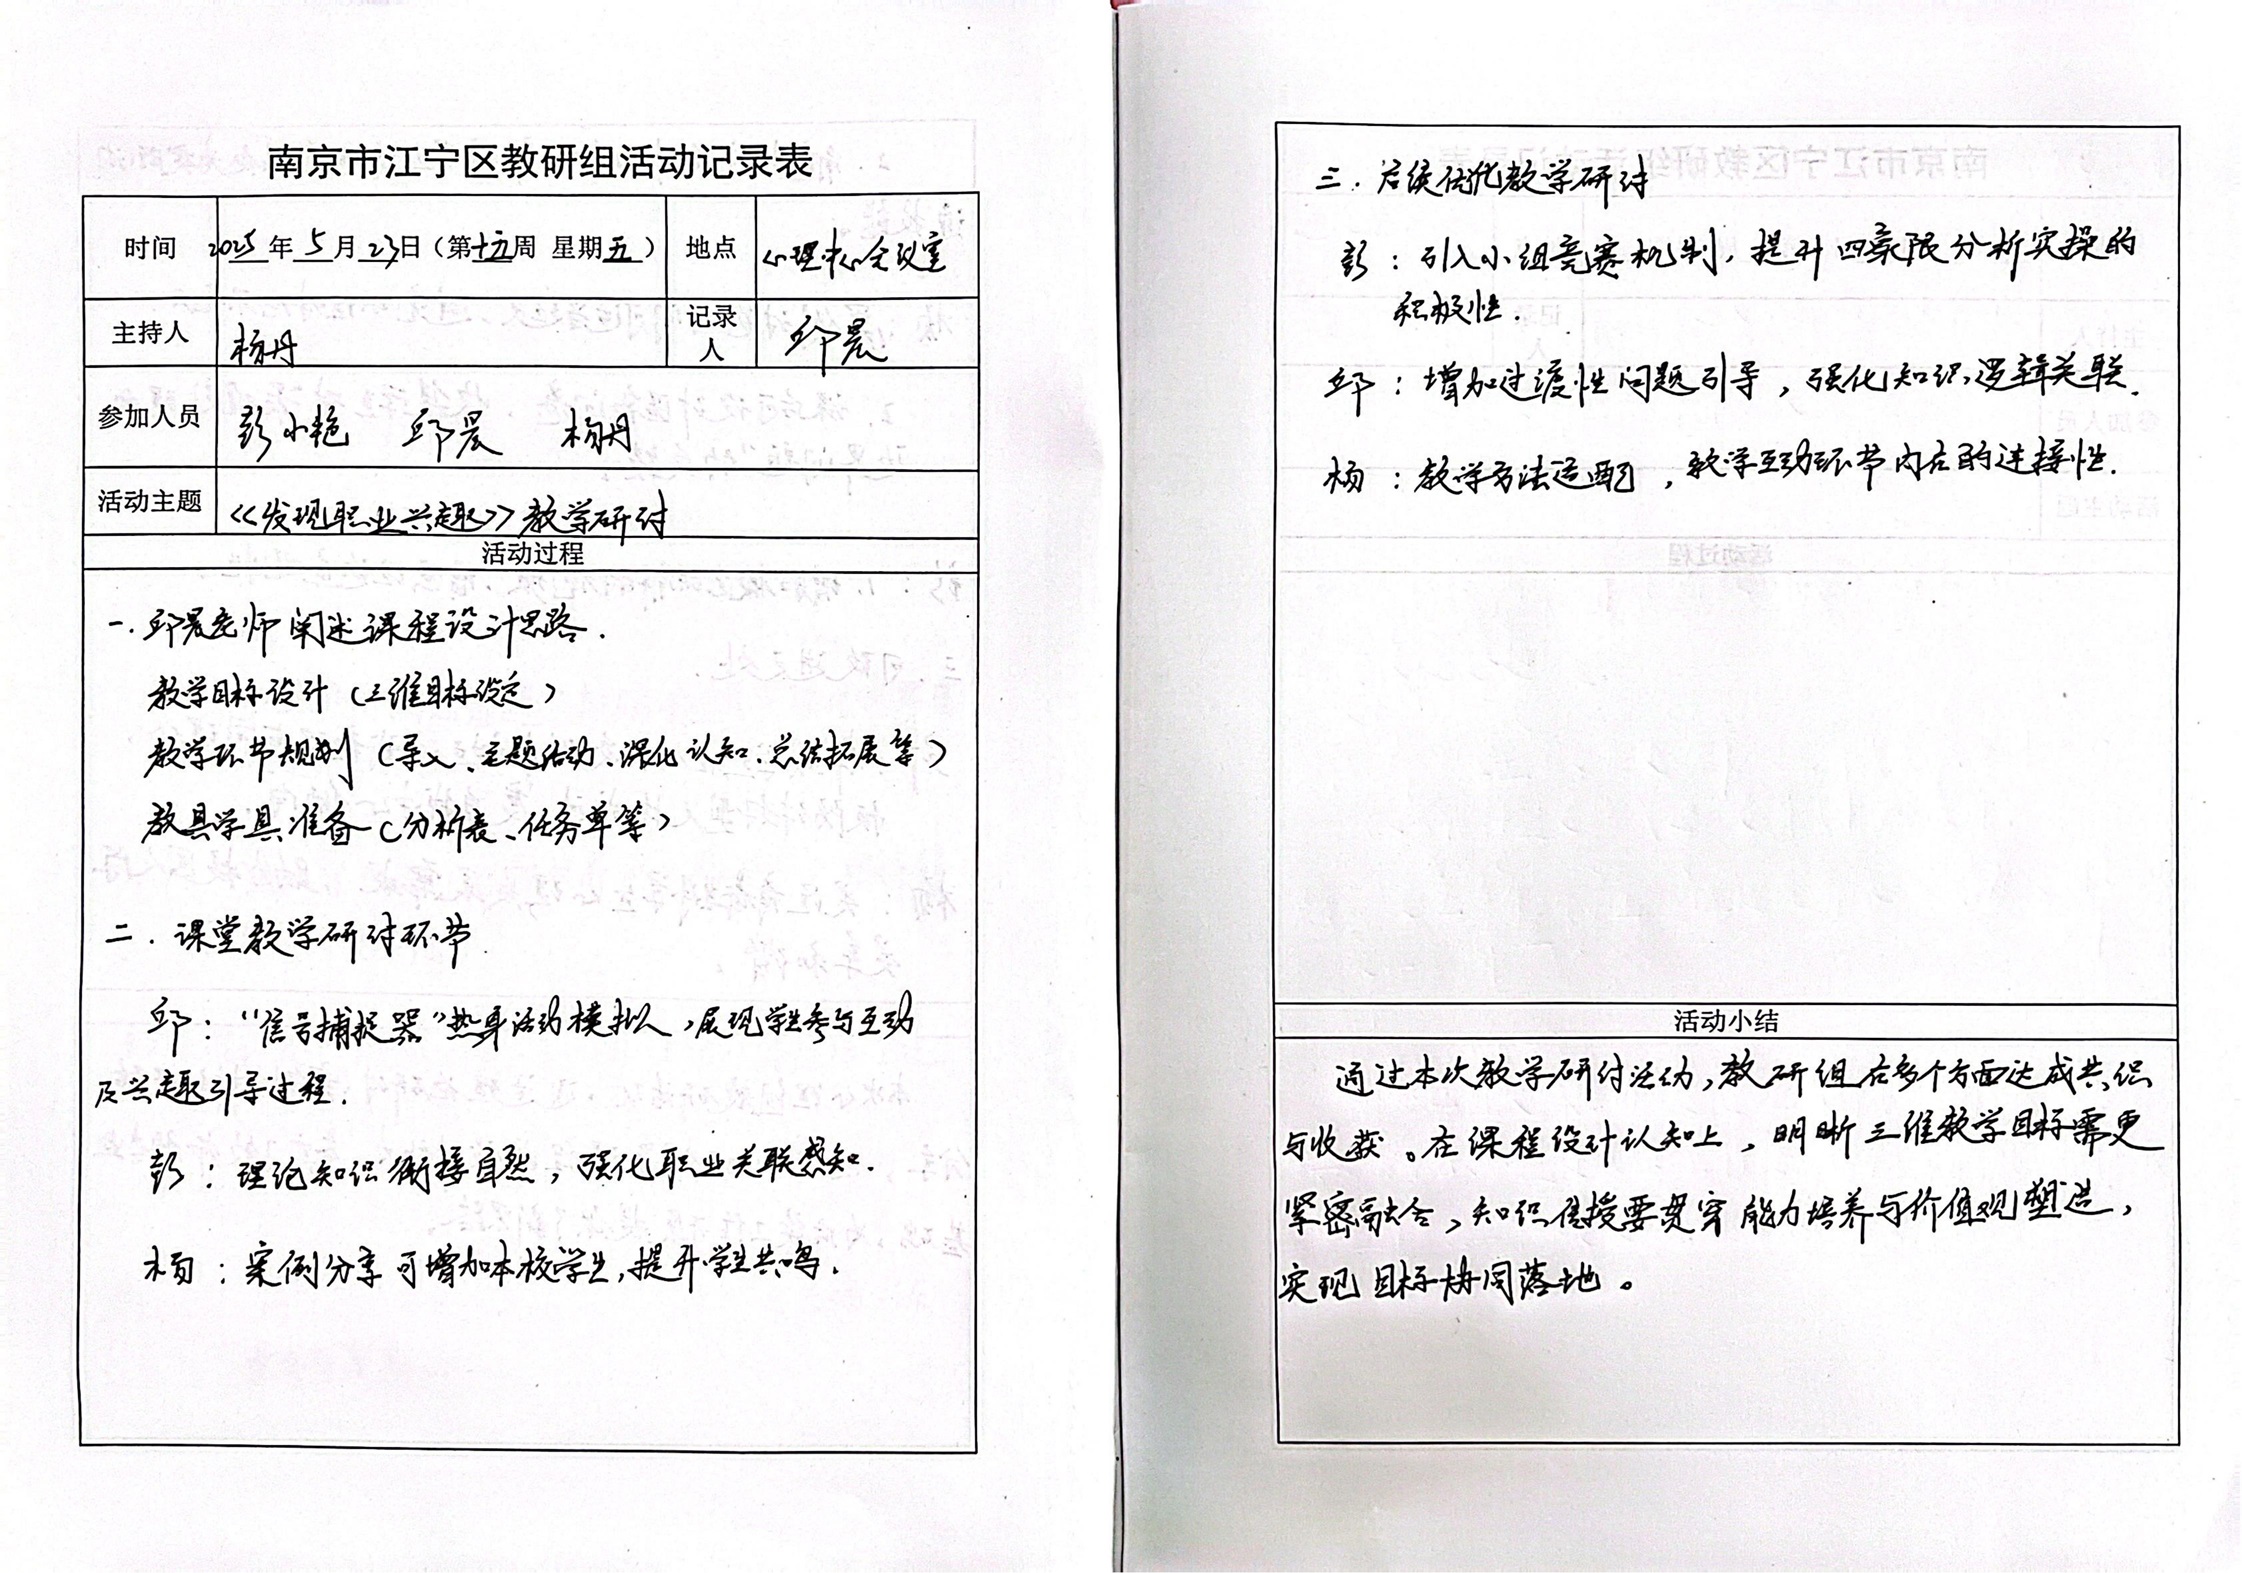 南京市江宁区教研组活动记录表
时间 2025年5月23日（第十五周 星期五） 地点 心理中心会议室
主持人 杨丹 记录人 邱晨
参加人员 彭小艳 邱晨 杨丹
活动主题 《发现职业兴趣》教学研讨
活动过程
一.邱晨老师阐述课程设计思路.
教学目标设计（三维目标设定）
教学环节规划（导入、主题活动、深化认知、总结拓展等）
教具学具准备（分析表、任务单等）
二.课堂教学研讨环节
邱："信号捕捉器"热身活动模拟，展现学生参与互动
及兴趣引导过程.
彭：理论知识衔接自然，强化职业关联感知.
杨：案例分享可增加本校学生，提升学生共鸣.
三.后续优化教学研讨
彭：引入小组竞赛机制，提升四象限分析实操的
积极性.
邱：增加过渡性问题引导，强化知识逻辑关联.
杨：教学方法适配，教学互动环节内在的连接性.
活动小结
通过本次教学研讨活动，教研组在多个方面达成共识
与收获。在课程设计认知上，明晰三维教学目标需更
紧密融合，知识传授要贯穿能力培养与价值观塑造，
实现目标协同落地。